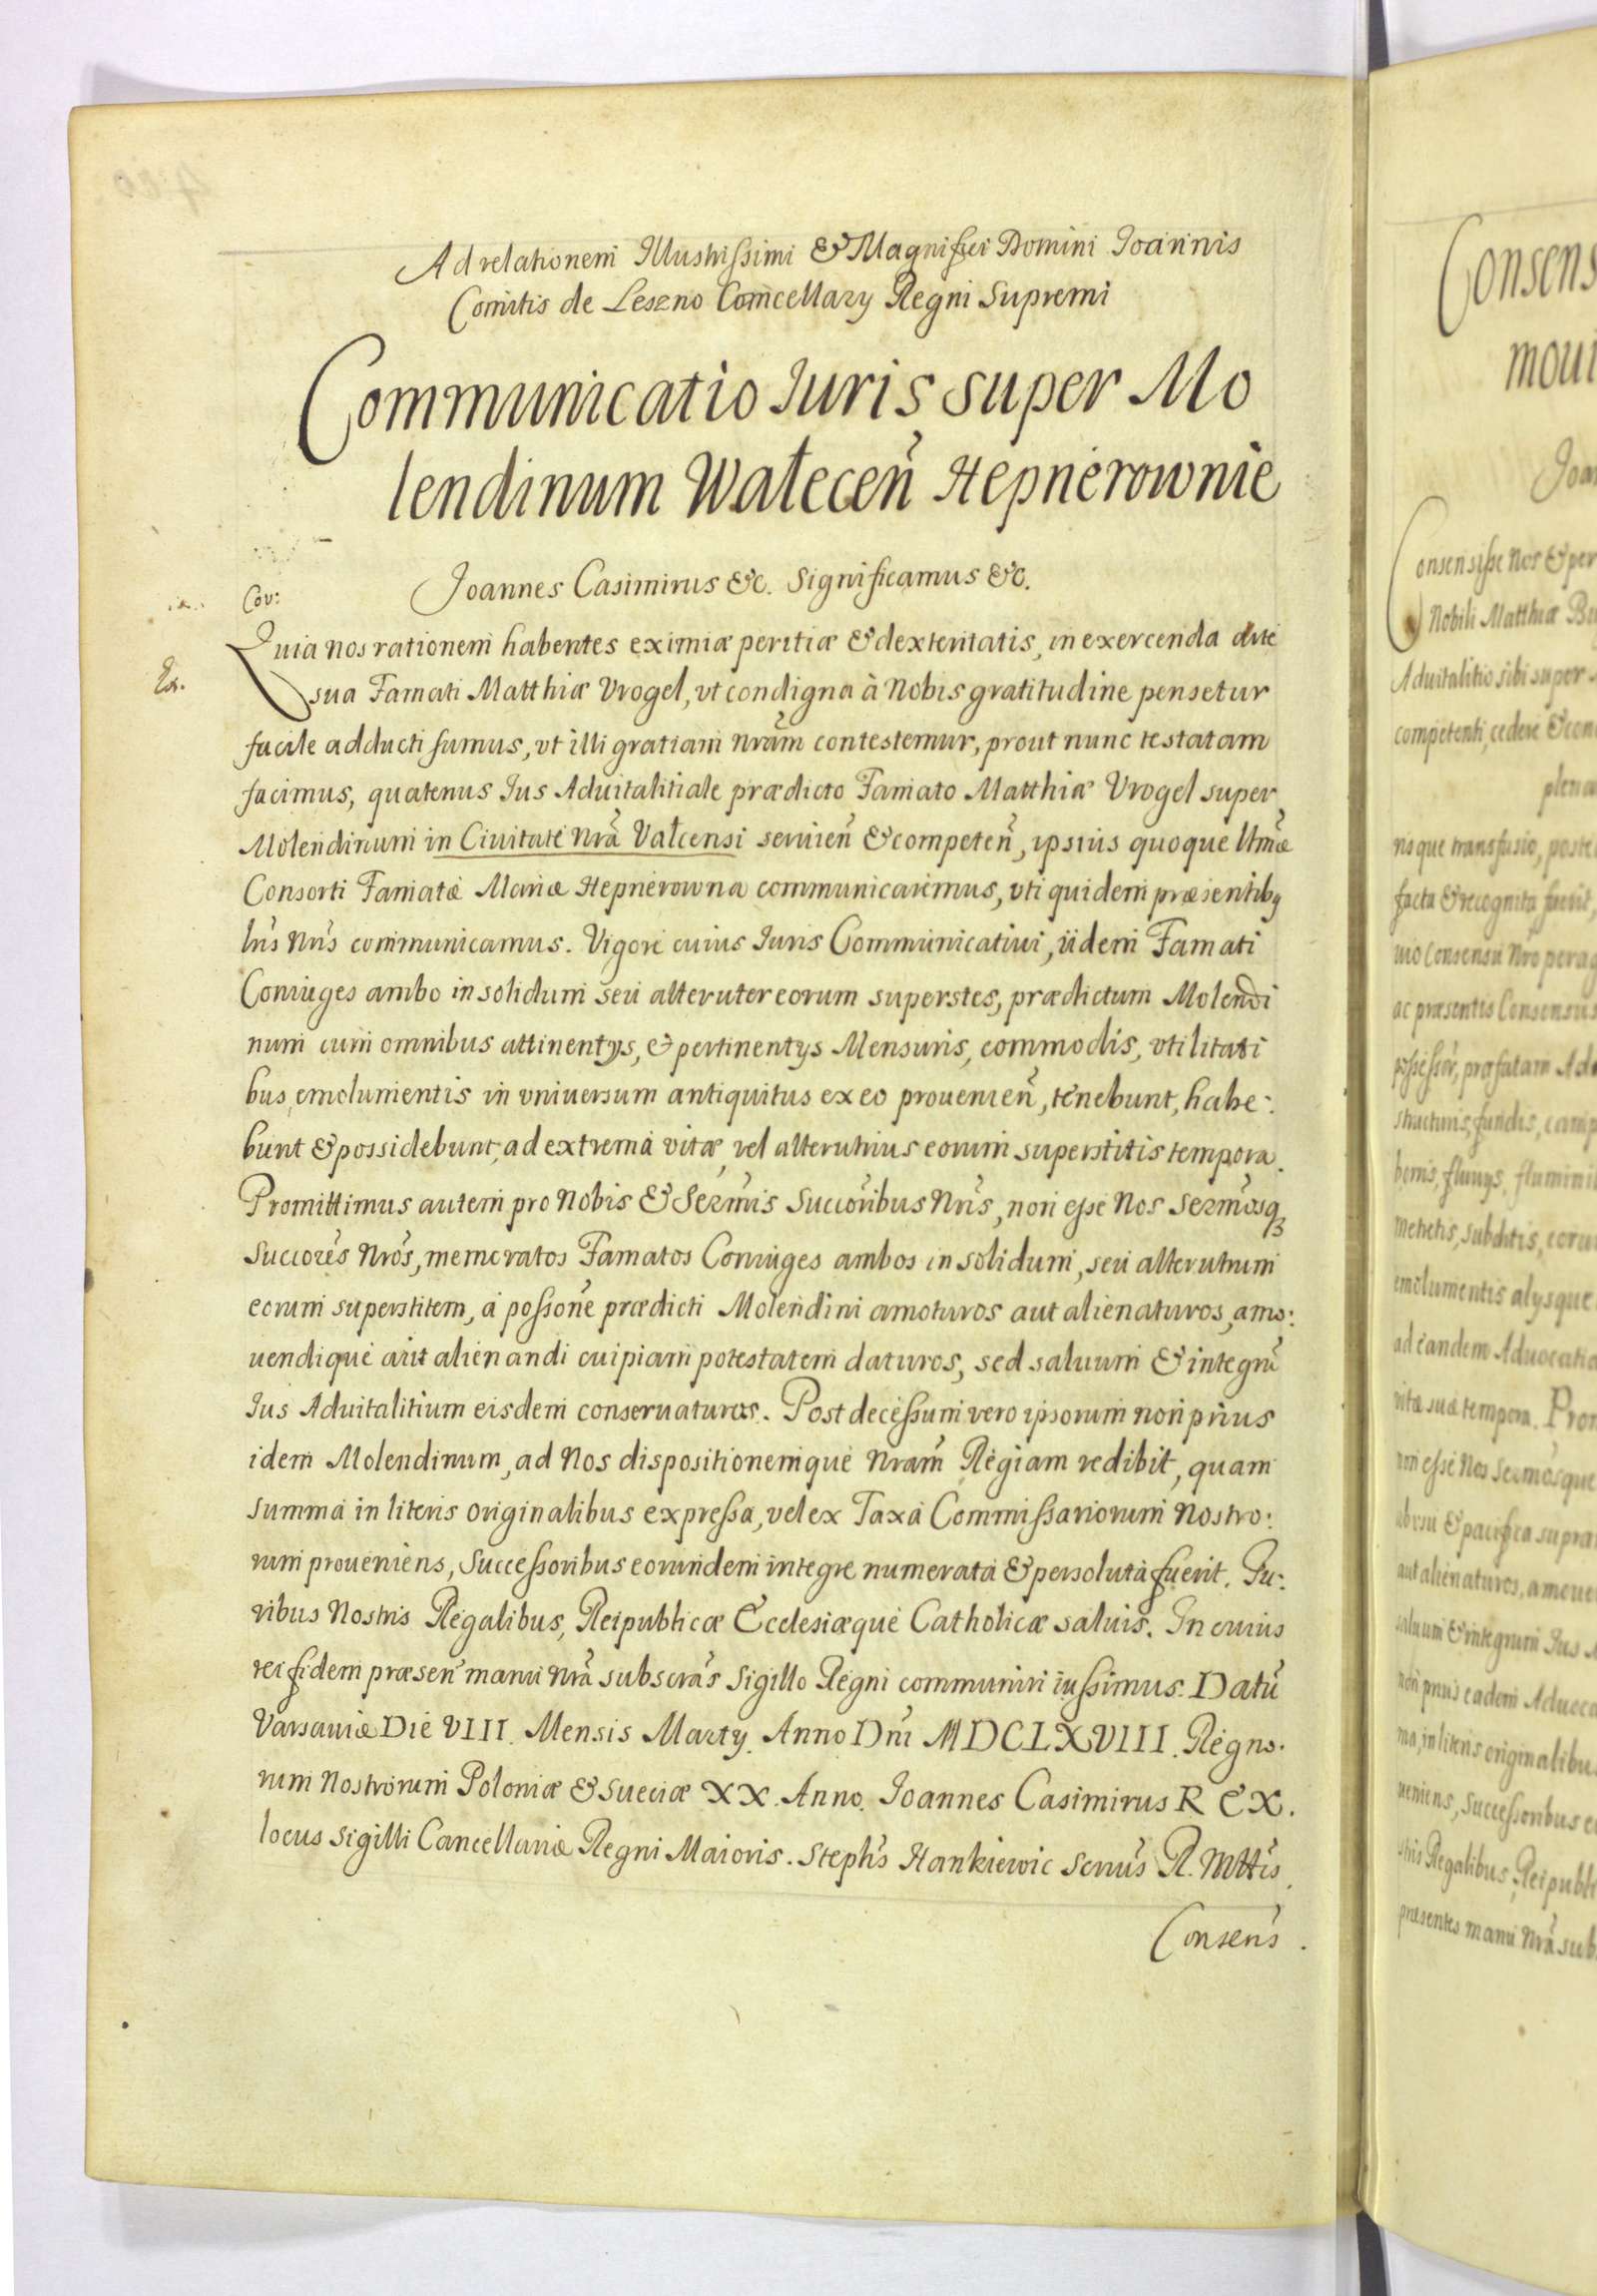 Ad relationem Illustrissimi & Magnifici Domini Joannis
Comitis de Leszno Cancellary Regni Supremi
Communicatio Iuris super Mo
lendinum Wałecen̄ Hepnerownie
Joannes Casimirus &c. Significamus &c.
Cov:
Quia nos rationem habentes eximiæ peritiæ & dexteritatis, in exercenda arte
sua Famati Matthiæ Vrogel, vt condigna à Nobis gratitudine pensetur
facile adducti sumus, vt illi gratiam nrãm contestemur, prout nunc testatam
facimus, quatenus Ius Aduitalitiale prædicto Famato Matthiæ Vrogel super
Molendinum in Ciuitate nrã Vałcensi seruien̄ & competen̄, ipsius quoque ltmæ
Consorti Famatæ Mariæ Hepnerowna communicaremus, vti quidem præsentibq
lrĩs nrĩs communicamus. Vigore cuius Iuris Communicatiui, iidem Famati
Coniuges ambo in solidum seu alteruter eorum superstes, prædictum Molendi
num cum omnibus attinentys, & pertinentys Mensuris, commodis, vtilitati
bus, emolumentis in vniuersum antiquitus ex eo prouenien̄, tenebunt, habe:
bunt & possidebunt, ad extrema vitæ, vel alterutrius eorum superstitis tempora.
Promittimus autem pro Nobis & Serm̃is Succõribus Nrĩs, non esse Nos Serm̃osq
Succorẽs Nrõs, memoratos Famatos Coniuges ambos in solidum, seu alterutrum
eorum superstitem, à possonẽ prædicti Molendini amoturos aut alienaturos, amo:
uendique aut alienandi cuipiam potestatem daturos, sed saluum & integrũ
Ius Aduitalitium eisdem conseruaturos. Post decessum vero ipsorum non prius
idem Molendinum, ad Nos dispositionemque Nram̃ Regiam redibit, quam
summa in literis originalibus expressa, vel ex Taxa Commissariorum Nostro:
rum proueniens, Successoribus eorundem integre numerata & persoluta fuerit. Iu:
ribus Nostris Regalibus, Reipublicæ Ecclesiæque Catholicæ saluis. In cuius
rei fidem præsen̄ manu nrã subscrãs Sigillo Regni communiri iussimus. Datũ
Varsauiæ Die VIII. Mensis Marty. Anno Dnĩ MDCLXVIII. Regno.
rum Nostrorum Poloniæ & Sueciæ XX. Anno. Joannes Casimirus REX.
locus Sigilli Cancellariæ Regni Maioris. Stephs̃ Hankiewic Secrius̃ R. Mttis.
Consens̃.
Consens
moui
Joan
Consensisse Nos & per
Nobili Matthiæ
Aduitalitio sibi super
competenti, cedere & con
plena
nisque transfusio, poste
facta & recognita fuerit,
uio Consensu Nro perag
ac præsentis Consensus
possessor, præfatam Ad
structuris, fundis, camp
bornis, fluuys, flumini
metretis, subditis, coru
emolumentis alysque
ad eandem Aduocatia
vitæ suæ tempora. Prom
non esse Nos Sermosque
ab vsu & pacifica supra
aut alienaturos, amoue
saluum & integrum Ius A
non prius eadem Aduoca
ma, in literis originalibu
ueniens, Successoribus e
stris Regalibus, Reipubli
præsentes manu Nrã sub